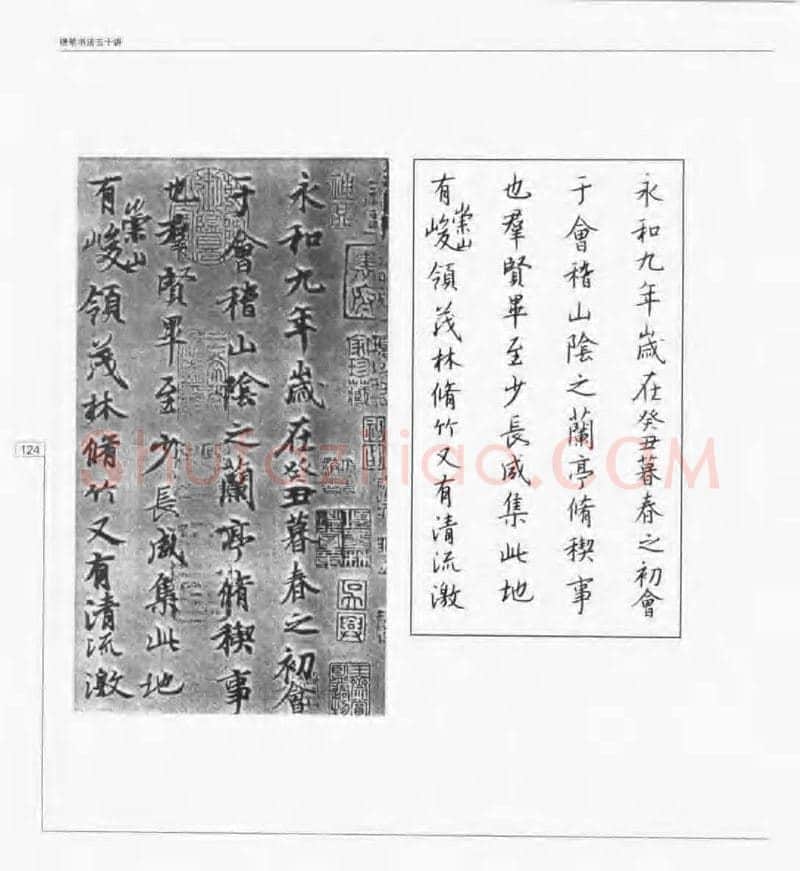 硬笔书法五十讲
永和九年歲在癸丑暮春之初會
于會稽山陰之蘭亭脩稧事
也羣賢畢至少長咸集此地
有崇山峻領茂林脩竹又有清流激
永和九年歲在癸丑暮春之初會
于會稽山陰之蘭亭脩稧事
也羣賢畢至少長咸集此地
有崇山峻領茂林脩竹又有清流激
124
Shufaziliao.COM